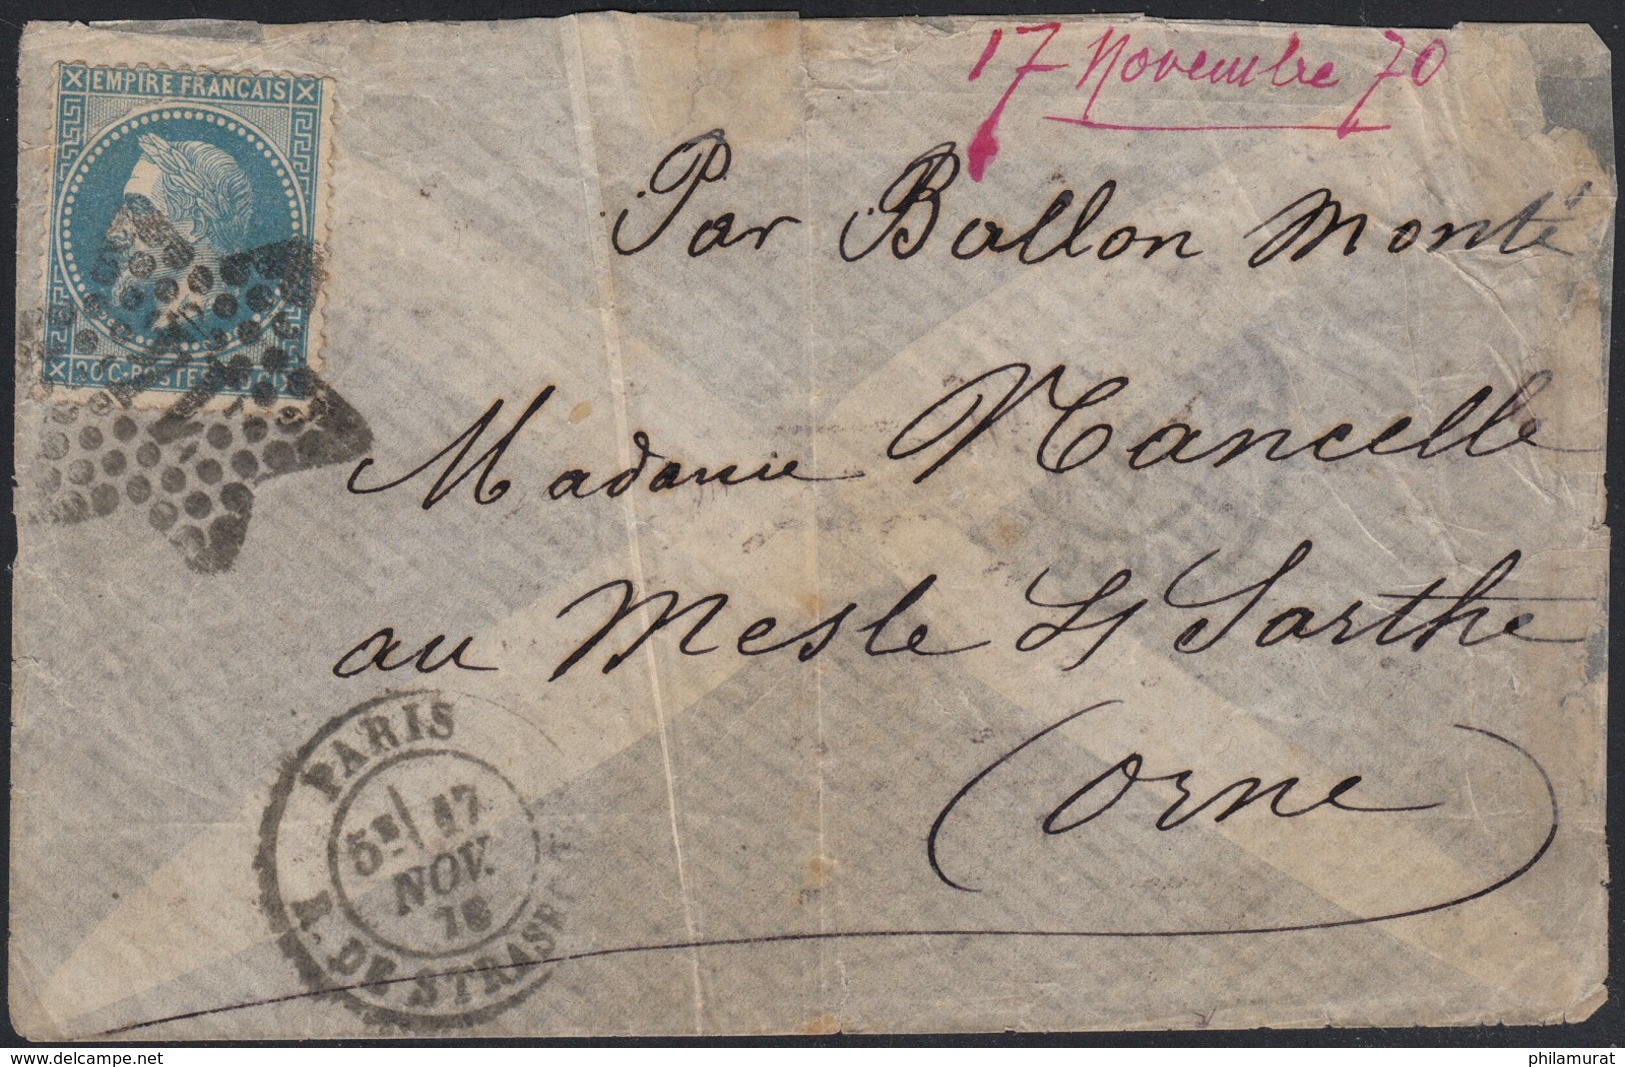 17 Novembre 70
EMPIRE FRANÇAIS
Par Ballon Monté
20 C·POSTES
Madame Nancelle
au Mesle S/ Sarthe
(Orne)
PARIS
5E 17
NOV.
70
R. DE STRASB
delcampe.net
philamurat